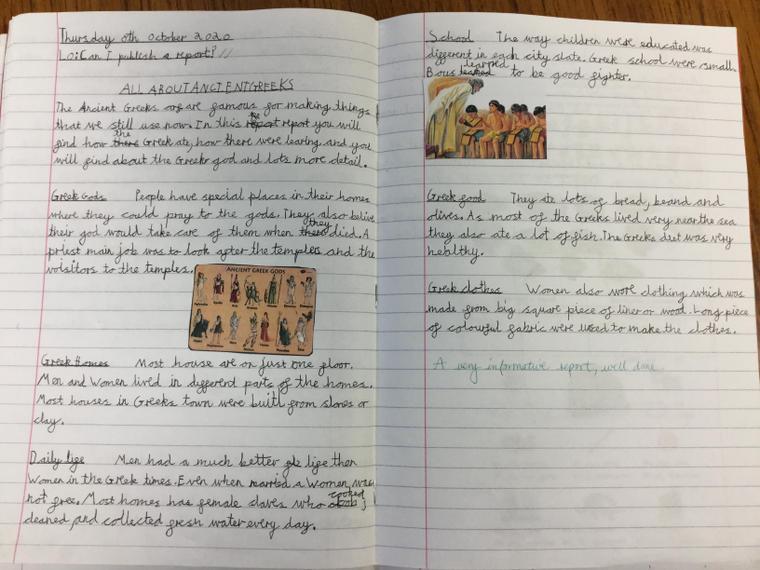 Thursday 8th October 2020
LO: Can I publish a report?
ALL ABOUT ANCIENT GREEKS
The Ancient Greeks are famous for making things
that we still use now. In this report you will
find how the Greek ate, how there were learing and you
will find about the Greekr god and lots more detail.
Greek Gods People have special places in their homes
where they could pray to the gods. They also belive
their god would take care of them when they died. A
priest main job was to look after the temples and the
volsitors to the temples.
ANCIENT GREEK GODS
Greek Homes Most house are on just one floor.
Men and Women lived in different parts of the homes.
Most houses in Greeks town were built from stones or
clay.
Daily life Men had a much better life then
Women in the Greek times. Even when married a Women was
not free. Most homes has female slaves who cooked,
cleaned and collected fresh water every day.
School The way children were educated was
different in each city state. Greek school were small.
Boys learned to be good fighter.
Greek food They ate lots of bread, beand and
olives. As most of the Greeks lived very near the sea
they also ate a lot of fish. The Greeks diet was very
healthy.
Greek clothes Women also wore clothing which was
made from big square piece of liner or wool. Long piece
of colourful fabric were used to make the clothes.
A very informative report, well done